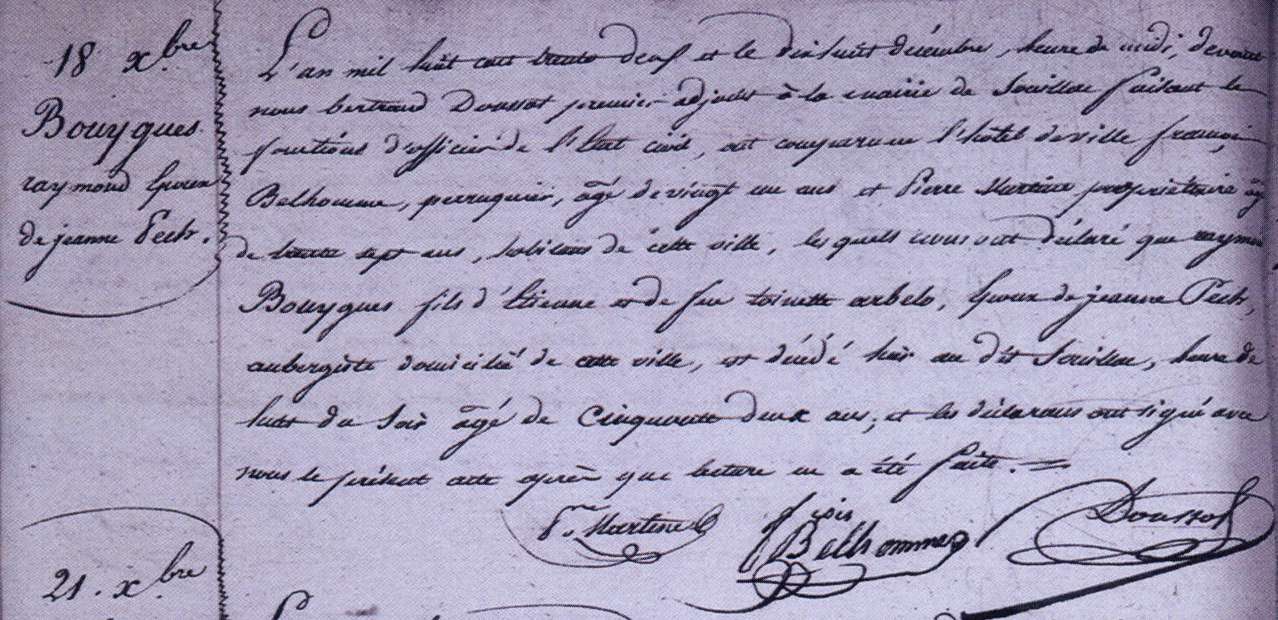 18 xbre
Bouyques
raymond Epoux
de jeanne Pech.
L'an mil huit cent trente deux et le dixhuit décembre, heure de midi, devant
nous bertrand Doussot premier adjoint à la mairie de Souillac faisant les
fonctions d'officier de l'Etat civil, ont comparu en l'hôtel de ville françois
Belhomme, perruquier, âgé de vingt un ans et Pierre Martine propriétaire âgé
de trente sept ans, habitans de cette ville, les quels nous ont déclaré que raymond
Bouyques fils d'Etienne et de feu toinette arbelo, Epoux de jeanne Pech,
aubergiste domicilié de cette ville, est décédé hier au dit Souillac, heure de
huit du soir âgé de cinquante deux ans; et les déclarans ont signé avec
nous le présent acte après que lecture en a été faite.
Pre Martine
fçois Belhomme
Doussot
21. xbre